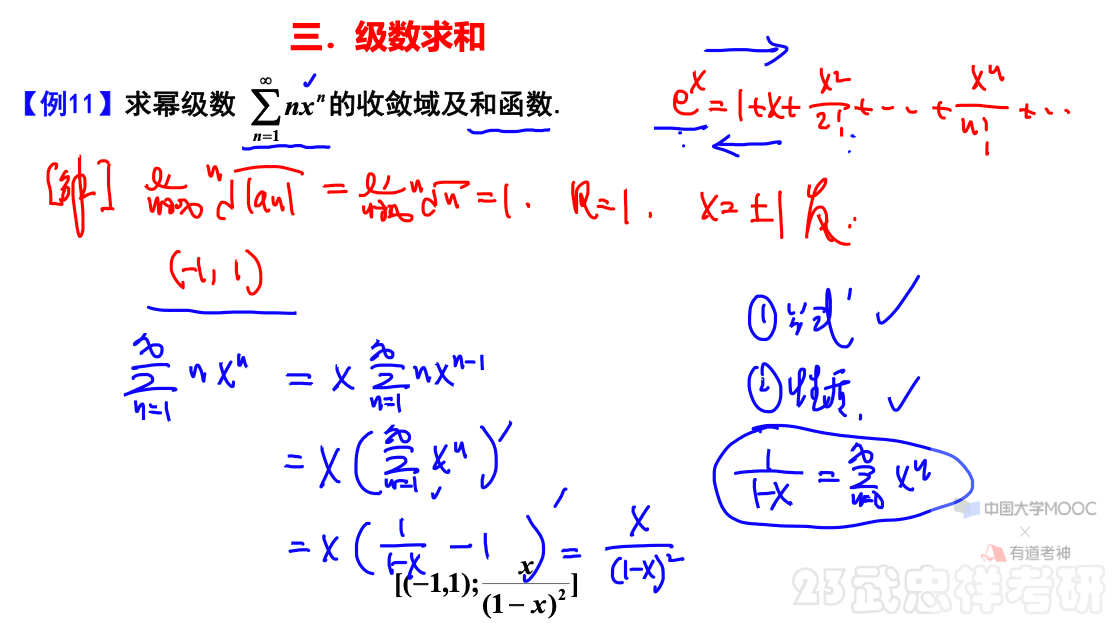 三．级数求和
【例11】求幂级数 \sum_{n=1}^{\infty} nx^n 的收敛域及和函数.
e^x = 1+x+\frac{x^2}{2!}+\cdots+\frac{x^n}{n!}+\cdots
[解] \lim_{n\to\infty} \sqrt[n]{|a_n|} = \lim_{n\to\infty} \sqrt[n]{n} = 1. R=1. x=±1
(-1, 1)
① 公式
② 性质.
\frac{1}{1-x} = \sum_{n=0}^{\infty} x^n
\sum_{n=1}^{\infty} nx^n = x \sum_{n=1}^{\infty} nx^{n-1}
= x (\sum_{n=1}^{\infty} x^n)'
= x (\frac{1}{1-x} - 1)' = \frac{x}{(1-x)^2}
[(-1,1); \frac{x}{(1-x)^2}]
中国大学MOOC
×
有道考神
23武忠祥考研